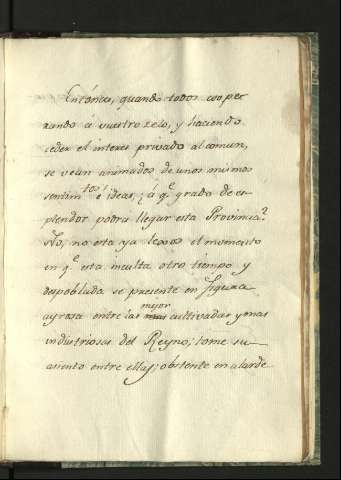 Entónces, quando todos cooper
rando á vuestro zelo, y haciendo
ceder el interes privado al comun,
se vean animados de unos mismos
sentim.tos é ideas, ¿á q.e grado de es
plendor podrá llegar esta Provincia?
No, no esta ya lexos el momento
en q.e esta inculta otro tiempo y
despoblada se presente en figura
ayrosa entre las mejor cultivadas y mas
industriosas del Reyno; tome su
asiento entre ellas; obstente en alarde